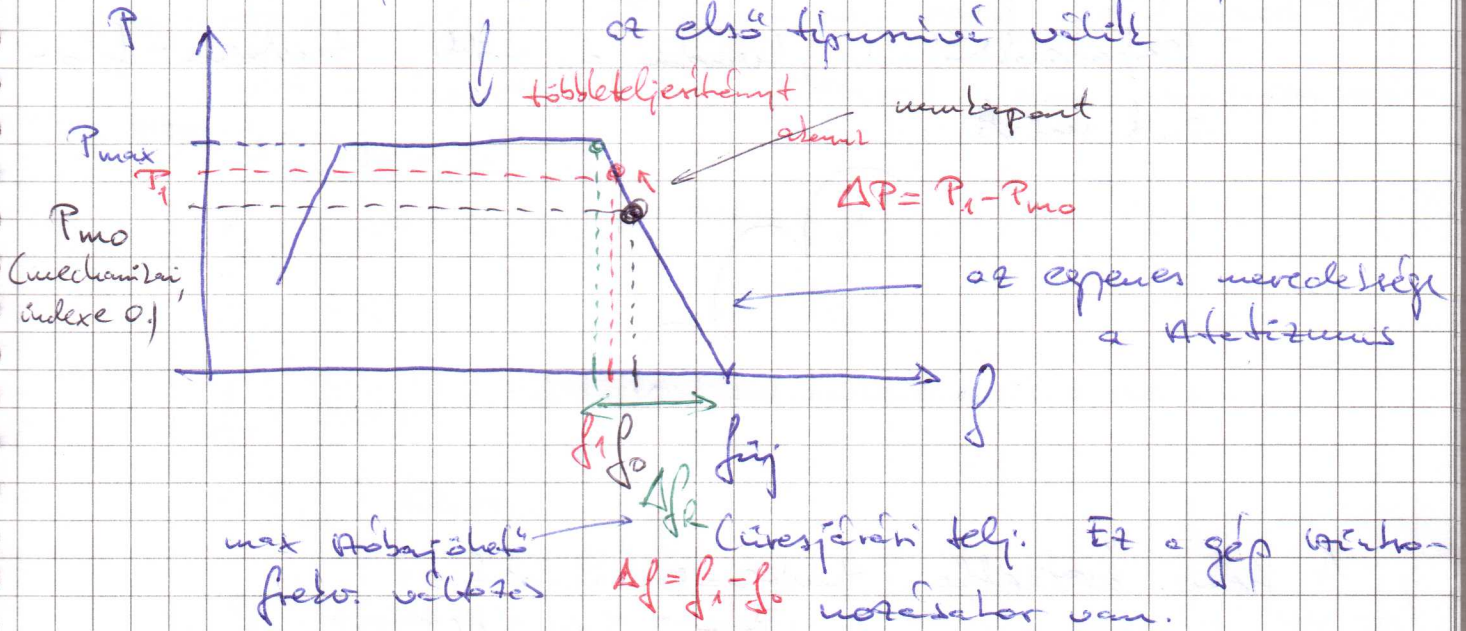 az első típusúvá válik
P
többletteljesítményt
munkapont
Pmax
P1
ΔP = P1 - Pmo
Pmo
(mechanikai,
indexe 0.)
az egyenes meredeksége
a statizmus
f
f1 f0 füj
Δfk
max szóbajöhető
frekv. változás
Δf = f1 - f0
(üresjárási telj. Ez a gép szinkro-
nozásakor van.